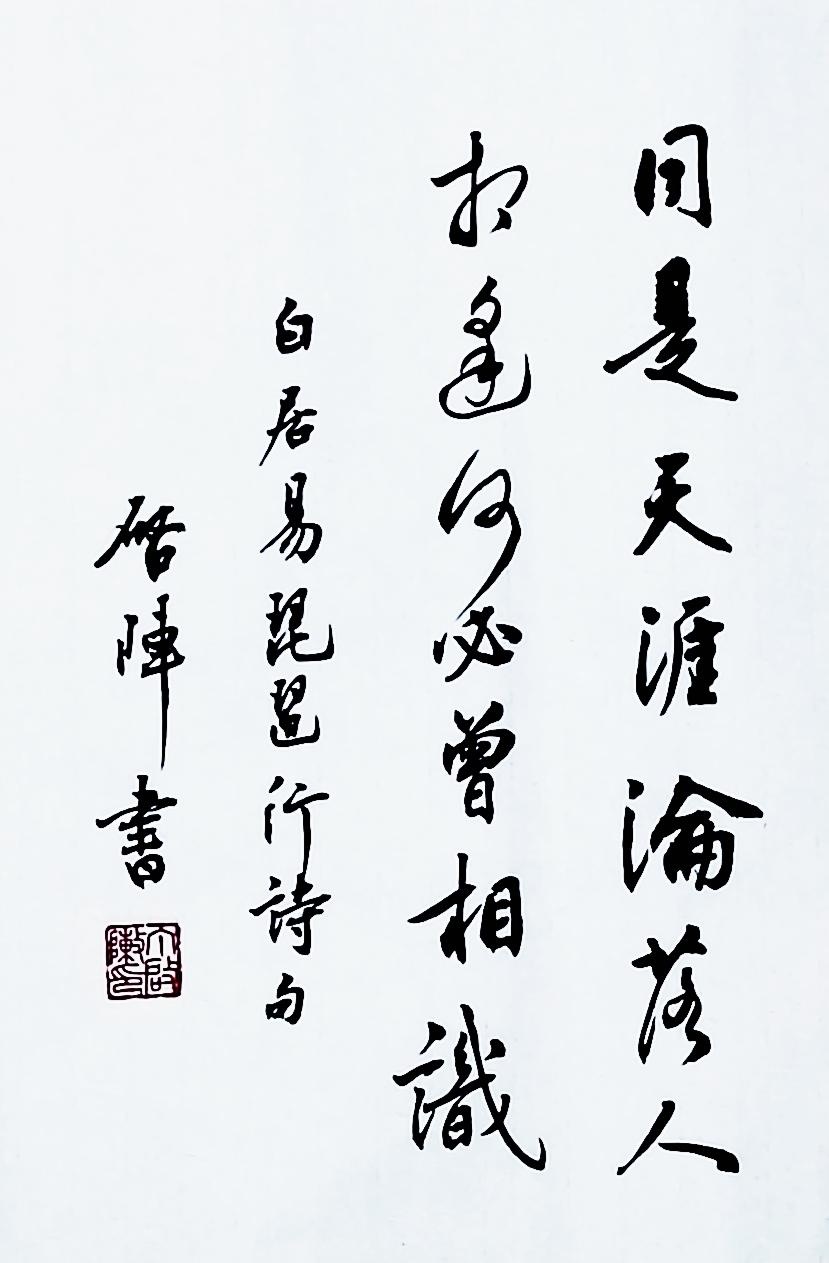 同是天涯淪落人
相逢何必曾相識
白居易琵琶行詩句
啓陣書